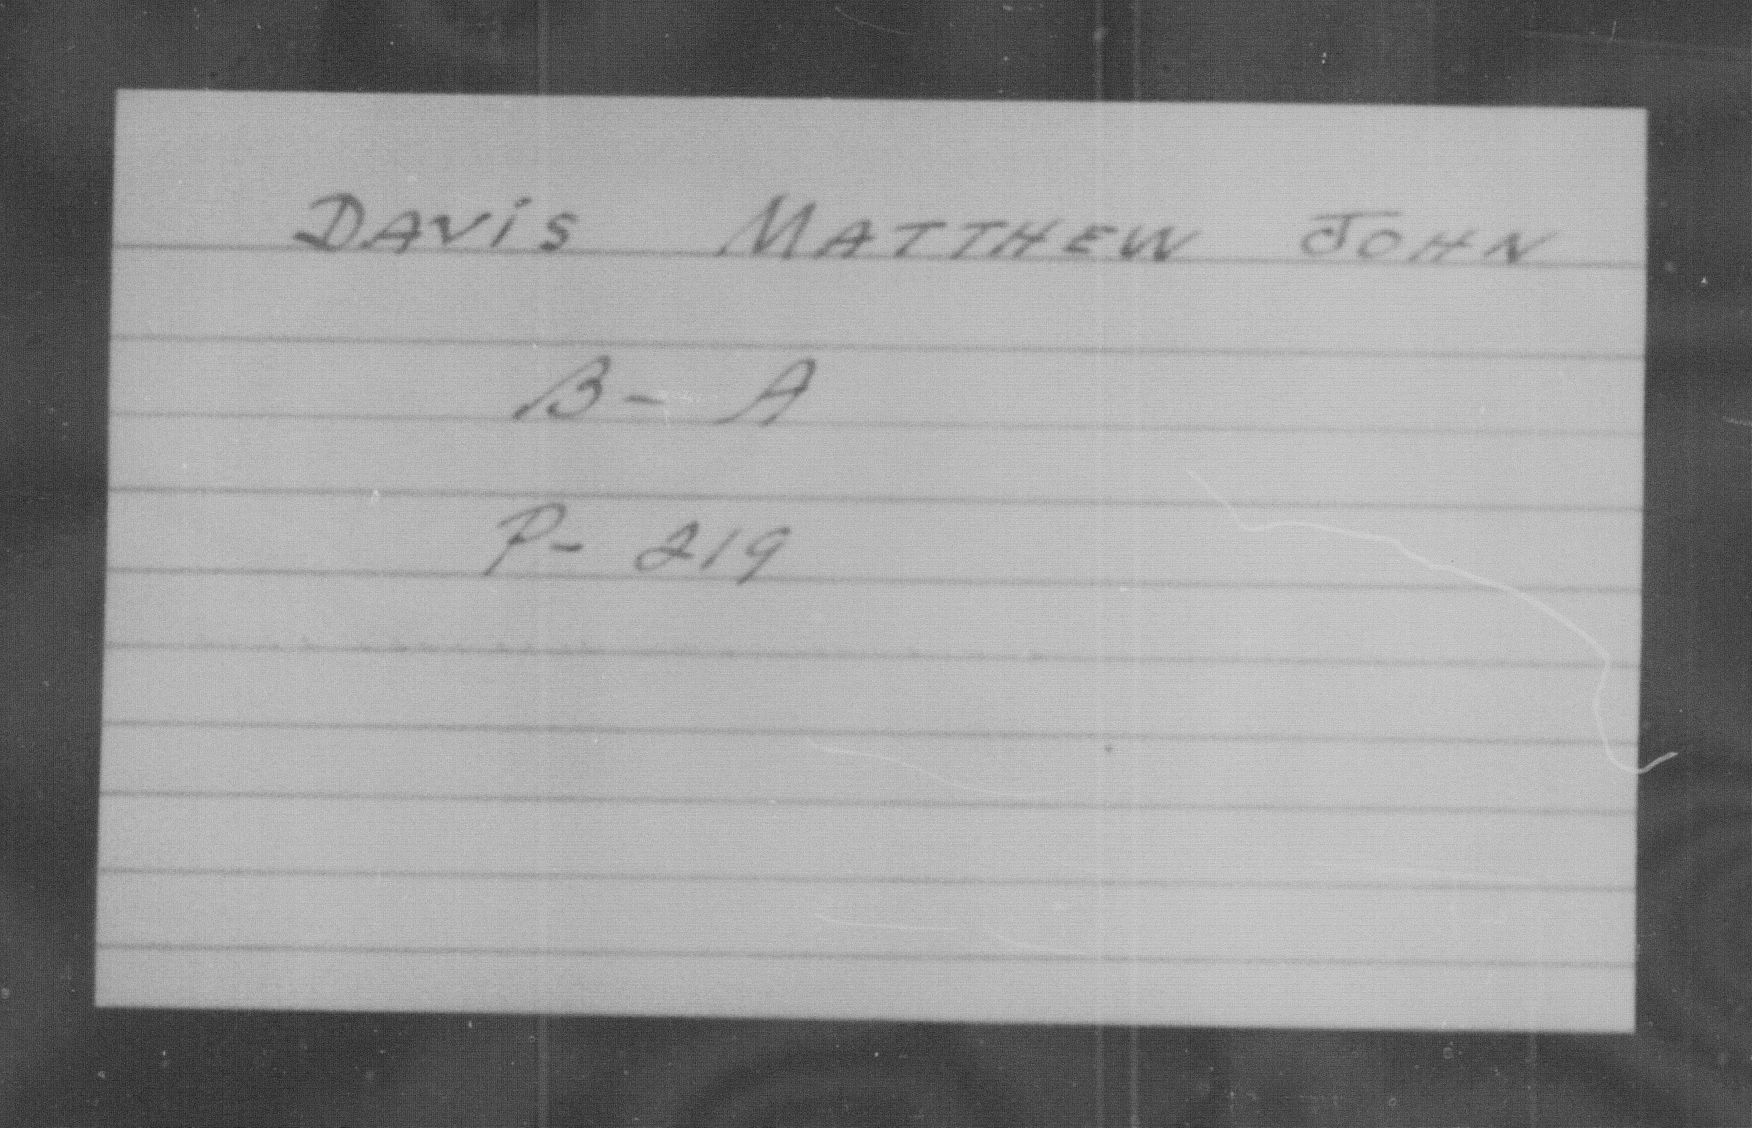 DAVIS MATTHEW JOHN
B- A
P- 219